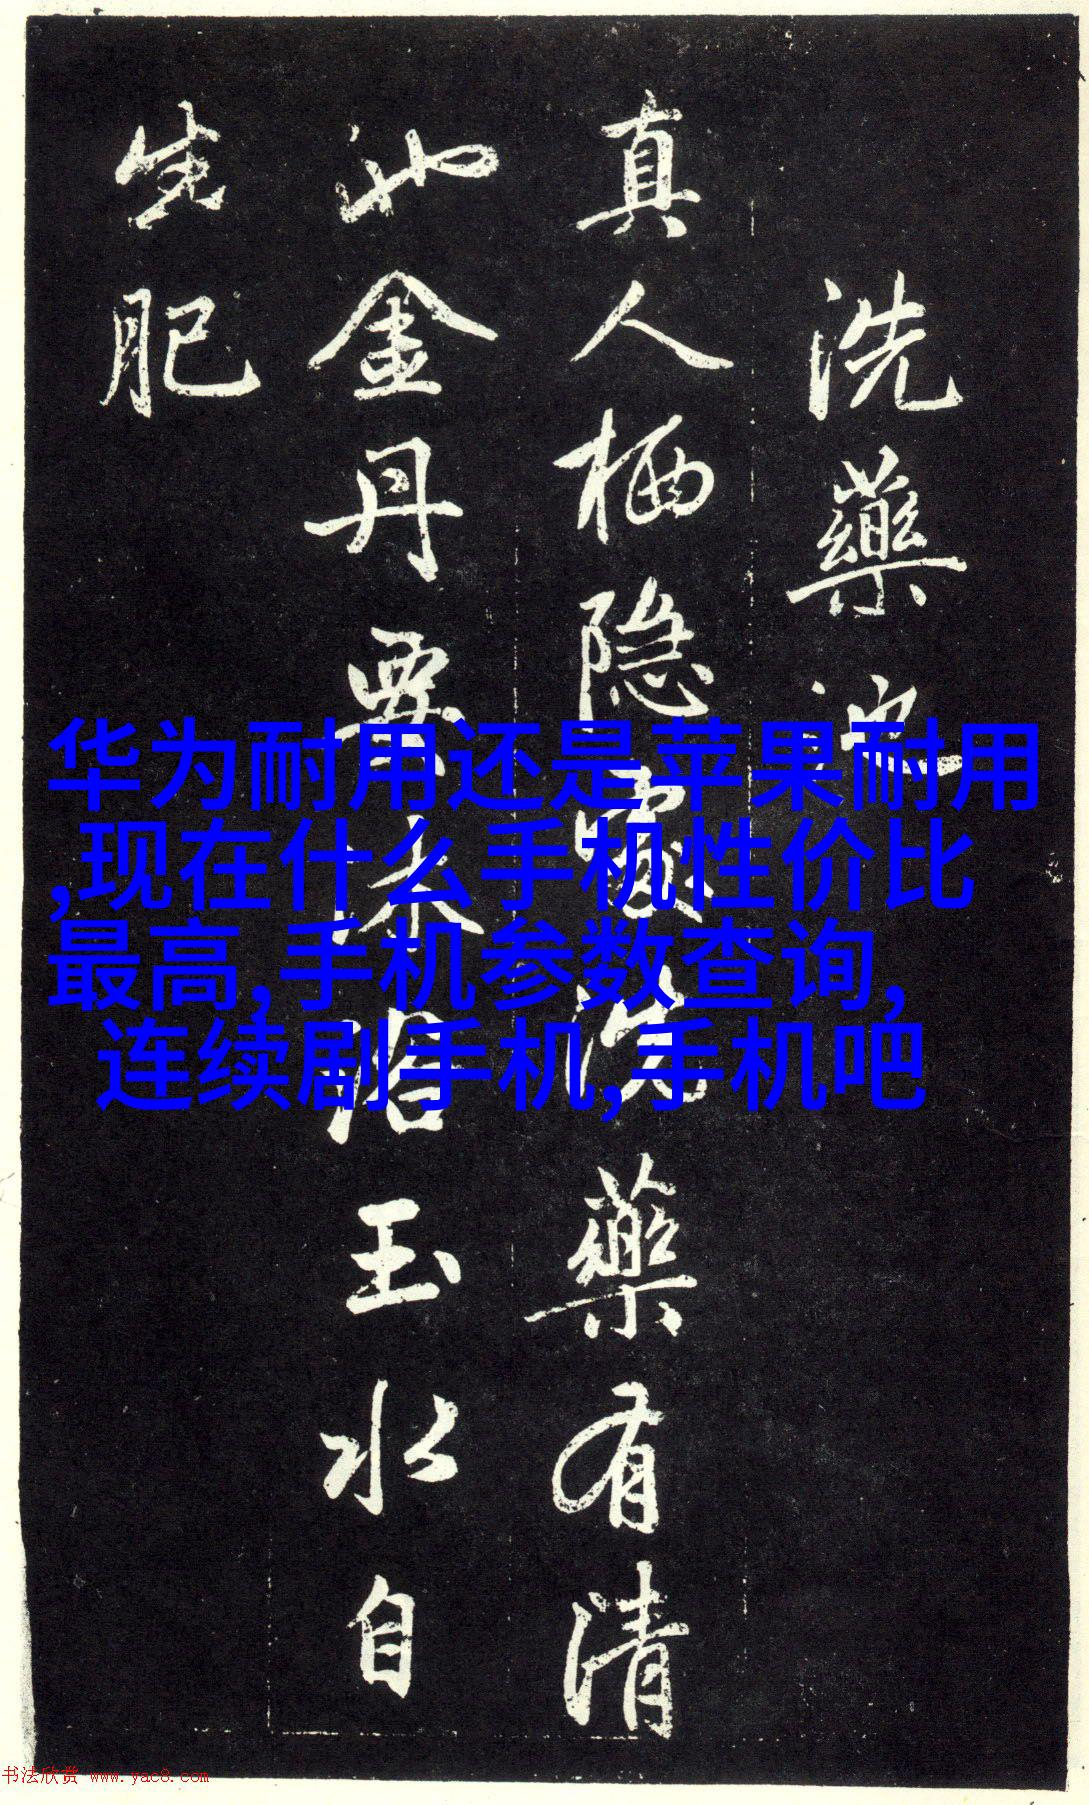 洗藥池
真人栖隐處洗藥有清
池金丹要沐浴玉水自
生肥
华为耐用还是苹果耐用
,现在什么手机性价比
最高,手机参数查询,
连续剧手机,手机吧
书法欣赏 www.yac8.com